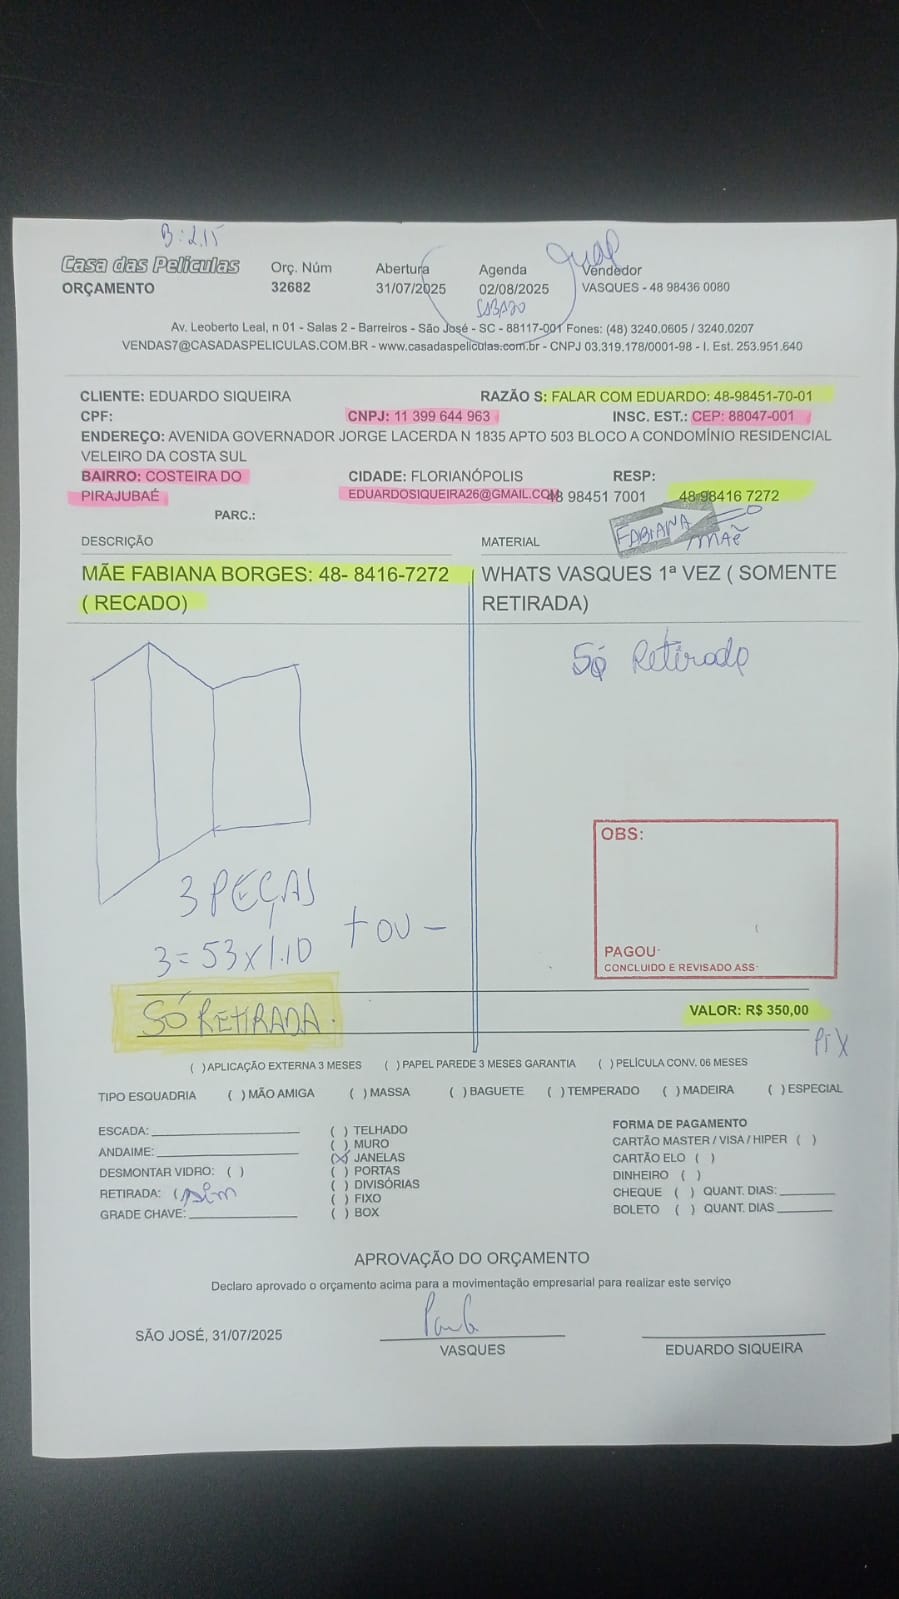 B: 2.15
Casa das Películas
ORÇAMENTO
Orç. Núm
32682
Abertura
31/07/2025
Agenda
02/08/2025
SÁBADO
Vendedor
VASQUES - 48 98436 0080
Av. Leoberto Leal, n 01 - Salas 2 - Barreiros - São José - SC - 88117-001 Fones: (48) 3240.0605 / 3240.0207
VENDAS7@CASADASPELICULAS.COM.BR - www.casadaspeliculas.com.br - CNPJ 03.319.178/0001-98 - I. Est. 253.951.640
CLIENTE: EDUARDO SIQUEIRA
RAZÃO S: FALAR COM EDUARDO: 48-98451-70-01
CPF:
CNPJ: 11 399 644 963
INSC. EST.: CEP: 88047-001
ENDEREÇO: AVENIDA GOVERNADOR JORGE LACERDA N 1835 APTO 503 BLOCO A CONDOMÍNIO RESIDENCIAL
VELEIRO DA COSTA SUL
BAIRRO: COSTEIRA DO
PIRAJUBAÉ
CIDADE: FLORIANÓPOLIS
RESP:
EDUARDOSIQUEIRA26@GMAIL.COM
48 98451 7001
48 98416 7272
PARC.:
FABIANA
MÃE
DESCRIÇÃO
MATERIAL
MÃE FABIANA BORGES: 48- 8416-7272
( RECADO)
WHATS VASQUES 1ª VEZ ( SOMENTE
RETIRADA)
Só Retirada
3 PEÇAS
3 = 53 x 1.10 + OU -
SÓ RETIRADA.
OBS:
PAGOU-
CONCLUIDO E REVISADO ASS-
VALOR: R$ 350,00
PIX
( ) APLICAÇÃO EXTERNA 3 MESES ( ) PAPEL PAREDE 3 MESES GARANTIA ( ) PELÍCULA CONV. 06 MESES
TIPO ESQUADRIA ( ) MÃO AMIGA ( ) MASSA ( ) BAGUETE ( ) TEMPERADO ( ) MADEIRA ( ) ESPECIAL
ESCADA:
ANDAIME:
DESMONTAR VIDRO: ( )
RETIRADA: ( sim
GRADE CHAVE:
( ) TELHADO
( ) MURO
(X) JANELAS
( ) PORTAS
( ) DIVISÓRIAS
( ) FIXO
( ) BOX
FORMA DE PAGAMENTO
CARTÃO MASTER / VISA / HIPER ( )
CARTÃO ELO ( )
DINHEIRO ( )
CHEQUE ( ) QUANT. DIAS:
BOLETO ( ) QUANT. DIAS
APROVAÇÃO DO ORÇAMENTO
Declaro aprovado o orçamento acima para a movimentação empresarial para realizar este serviço
SÃO JOSÉ, 31/07/2025
VASQUES
EDUARDO SIQUEIRA